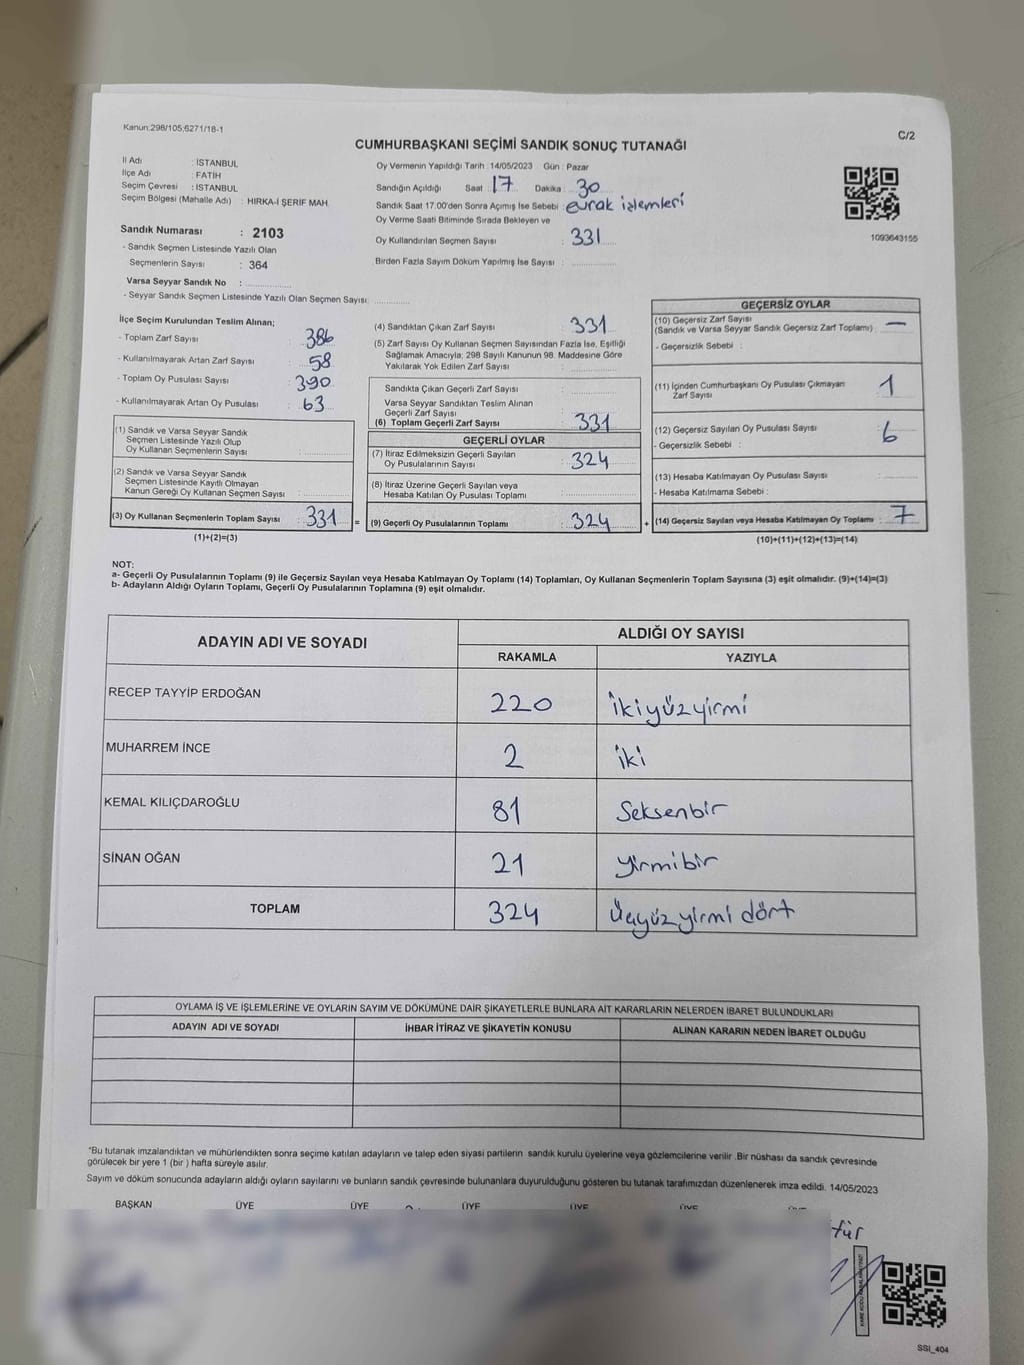 Kanun:298/105;6271/18-1
C/2
CUMHURBAŞKANI SEÇİMİ SANDIK SONUÇ TUTANAĞI
İl Adı : İSTANBUL
İlçe Adı : FATİH
Seçim Çevresi : İSTANBUL
Seçim Bölgesi (Mahalle Adı) : HIRKA-İ ŞERİF MAH.
Sandık Numarası : 2103
- Sandık Seçmen Listesinde Yazılı Olan
Seçmenlerin Sayısı : 364
Varsa Seyyar Sandık No :
- Seyyar Sandık Seçmen Listesinde Yazılı Olan Seçmen Sayısı:
Oy Vermenin Yapıldığı Tarih :14/05/2023 Gün : Pazar
Sandığın Açıldığı Saat : 17 Dakika : 30
Sandık Saat 17.00'den Sonra Açmış İse Sebebi : evrak işlemleri
Oy Verme Saati Bitiminde Sırada Bekleyen ve
Oy Kullandırılan Seçmen Sayısı : 331
Birden Fazla Sayım Döküm Yapılmış İse Sayısı :
1093643155
İlçe Seçim Kurulundan Teslim Alınan;
- Toplam Zarf Sayısı : 386
- Kullanılmayarak Artan Zarf Sayısı : 58
- Toplam Oy Pusulası Sayısı : 390
- Kullanılmayarak Artan Oy Pusulası : 63
(1) Sandık ve Varsa Seyyar Sandık
Seçmen Listesinde Yazılı Olup
Oy Kullanan Seçmenlerin Sayısı :
(2) Sandık ve Varsa Seyyar Sandık
Seçmen Listesinde Kayıtlı Olmayan
Kanun Gereği Oy Kullanan Seçmen Sayısı :
(3) Oy Kullanan Seçmenlerin Toplam Sayısı : 331 =
(1)+(2)=(3)
(4) Sandıktan Çıkan Zarf Sayısı : 331
(5) Zarf Sayısı Oy Kullanan Seçmen Sayısından Fazla İse, Eşitliği
Sağlamak Amacıyla, 298 Sayılı Kanunun 98. Maddesine Göre
Yakılarak Yok Edilen Zarf Sayısı :
Sandıkta Çıkan Geçerli Zarf Sayısı :
Varsa Seyyar Sandıktan Teslim Alınan
Geçerli Zarf Sayısı :
(6) Toplam Geçerli Zarf Sayısı : 331
GEÇERLİ OYLAR
(7) İtiraz Edilmeksizin Geçerli Sayılan
Oy Pusulalarının Sayısı : 324
(8) İtiraz Üzerine Geçerli Sayılan veya
Hesaba Katılan Oy Pusulası Toplamı :
(9) Geçerli Oy Pusulalarının Toplamı : 324 +
GEÇERSİZ OYLAR
(10) Geçersiz Zarf Sayısı
(Sandık ve Varsa Seyyar Sandık Geçersiz Zarf Toplamı) : —
- Geçersizlik Sebebi :
(11) İçinden Cumhurbaşkanı Oy Pusulası Çıkmayan
Zarf Sayısı : 1
(12) Geçersiz Sayılan Oy Pusulası Sayısı : 6
- Geçersizlik Sebebi :
(13) Hesaba Katılmayan Oy Pusulası Sayısı :
- Hesaba Katılmama Sebebi :
(14) Geçersiz Sayılan veya Hesaba Katılmayan Oy Toplamı : 7
(10)+(11)+(12)+(13)=(14)
NOT:
a- Geçerli Oy Pusulalarının Toplamı (9) ile Geçersiz Sayılan veya Hesaba Katılmayan Oy Toplamı (14) Toplamları, Oy Kullanan Seçmenlerin Toplam Sayısına (3) eşit olmalıdır. (9)+(14)=(3)
b- Adayların Aldığı Oyların Toplamı, Geçerli Oy Pusulalarının Toplamına (9) eşit olmalıdır.
ADAYIN ADI VE SOYADI ALDIĞI OY SAYISI
RAKAMLA YAZIYLA
RECEP TAYYİP ERDOĞAN 220 ikiyüzyirmi
MUHARREM İNCE 2 iki
KEMAL KILIÇDAROĞLU 81 Seksenbir
SİNAN OĞAN 21 yirmibir
TOPLAM 324 üçyüzyirmi dört
OYLAMA İŞ VE İŞLEMLERİNE VE OYLARIN SAYIM VE DÖKÜMÜNE DAİR ŞİKAYETLERLE BUNLARA AİT KARARLARIN NELERDEN İBARET BULUNDUKLARI
ADAYIN ADI VE SOYADI İHBAR İTİRAZ VE ŞİKAYETİN KONUSU ALINAN KARARIN NEDEN İBARET OLDUĞU
*Bu tutanak imzalandıktan ve mühürlendikten sonra seçime katılan adayların ve talep eden siyasi partilerin sandık kurulu üyelerine veya gözlemcilerine verilir .Bir nüshası da sandık çevresinde
görülecek bir yere 1 (bir ) hafta süreyle asılır.
Sayım ve döküm sonucunda adayların aldığı oyların sayılarını ve bunların sandık çevresinde bulunanlara duyurulduğunu gösteren bu tutanak tarafımızdan düzenlenerek imza edildi. 14/05/2023
BAŞKAN ÜYE ÜYE ÜYE ÜYE ÜYE
SSI_404